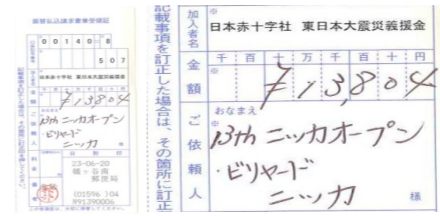 振替払込請求書兼受領証
00140 8
507
日本赤十字社 東日本大震災義援金
¥13,804
おなまえ
13th ニッカオープン
ビリヤード
ニッカ
23-06-20
郵便局
(01596 104
891390006
記載事項を訂正した場合は、その箇所に訂正
加入者名
日本赤十字社 東日本大震災義援金
金額
千 百 十 万 千 百 十 円
¥13,804
ご依頼人
おなまえ
13th ニッカオープン
・ビリヤード
ニッカ
様